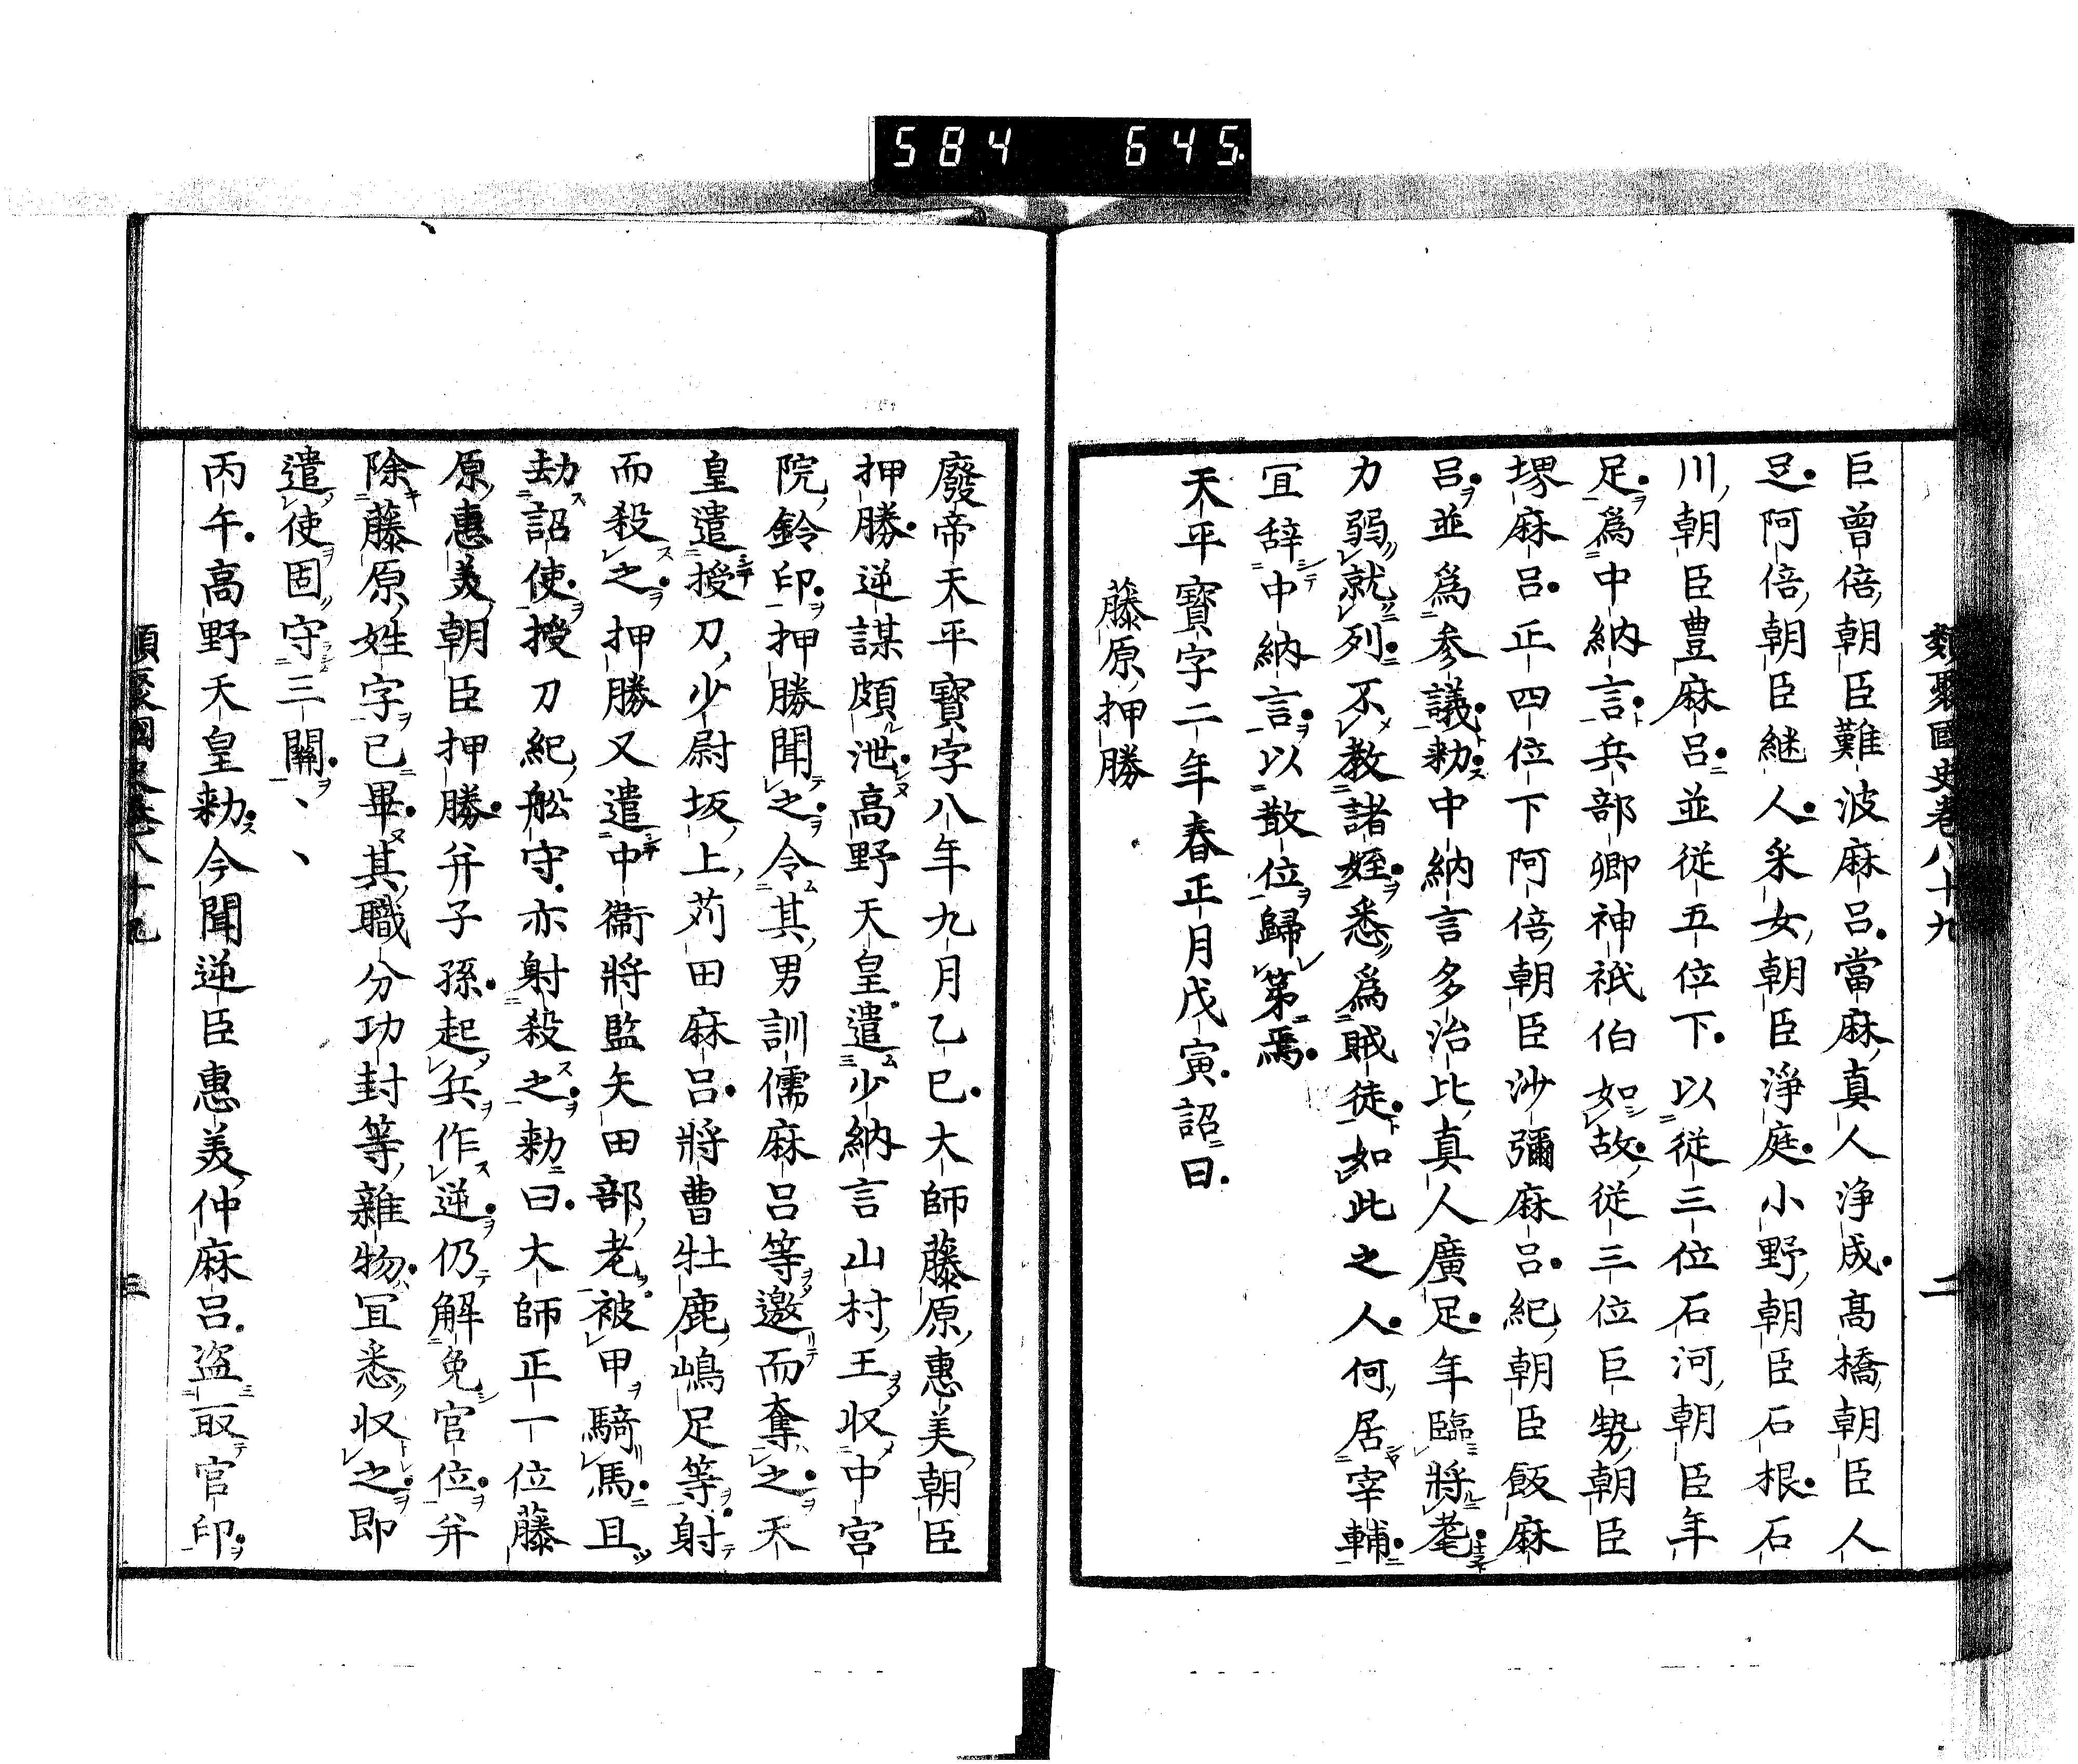 584 645
類聚國史卷八十九 二
巨曾倍朝臣難波麻呂當麻真人淨成高橋朝臣人
足阿倍朝臣継人釆女朝臣淨庭小野朝臣石根石
川朝臣豊麻呂並従五位下以従三位石河朝臣年
足爲中納言兵部卿神祇伯如故従三位巨勢朝臣
堺麻呂正四位下阿倍朝臣沙彌麻呂紀朝臣飯麻
呂並爲参議勅中納言多治比真人廣足年臨將耄
力弱就列不教諸姪悉爲賊徒如此之人何居宰輔
宜辞中納言以散位歸第焉
天平寶字二年春正月戊寅詔曰
藤原押勝
廢帝天平寶字八年九月乙巳大師藤原惠美朝臣
押勝逆謀頗泄高野天皇遣少納言山村王収中宮
院鈴印押勝聞之令其男訓儒麻呂等邀而奪之天
皇遣授刀少尉坂上苅田麻呂將曹牡鹿嶋足等射
而殺之押勝又遣中衞將監矢田部老被甲騎馬且
劫詔使授刀紀舩守亦射殺之勅曰大師正一位藤
原惠美朝臣押勝并子孫起兵作逆仍解免官位并
除藤原姓字已畢其職分功封等雜物宜悉収之即
遣使固守三關、、
丙午高野天皇勅今聞逆臣惠美仲麻呂盗取官印
類聚國史卷八十九 三